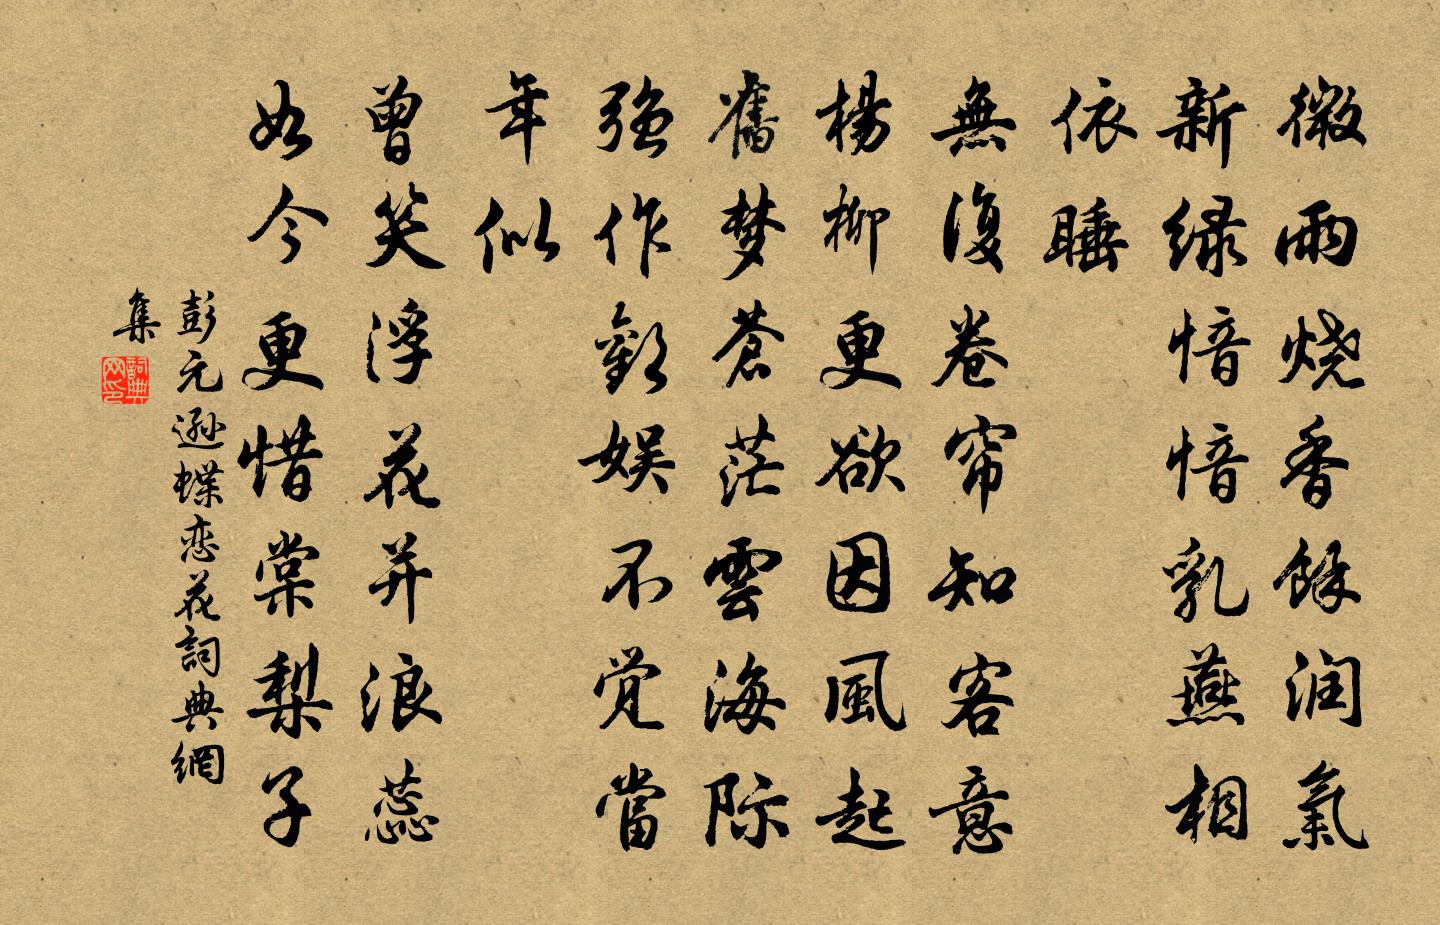 微雨烧香餘润氣
新绿愔愔乳燕相
依睡
無復卷帘知客意
楊柳更欲因風起
舊梦苍茫雲海际
强作歡娱不觉當
年似
曾笑浮花并浪蕊
如今更惜棠梨子
彭元逊蝶恋花詞典網
集
詞典网印